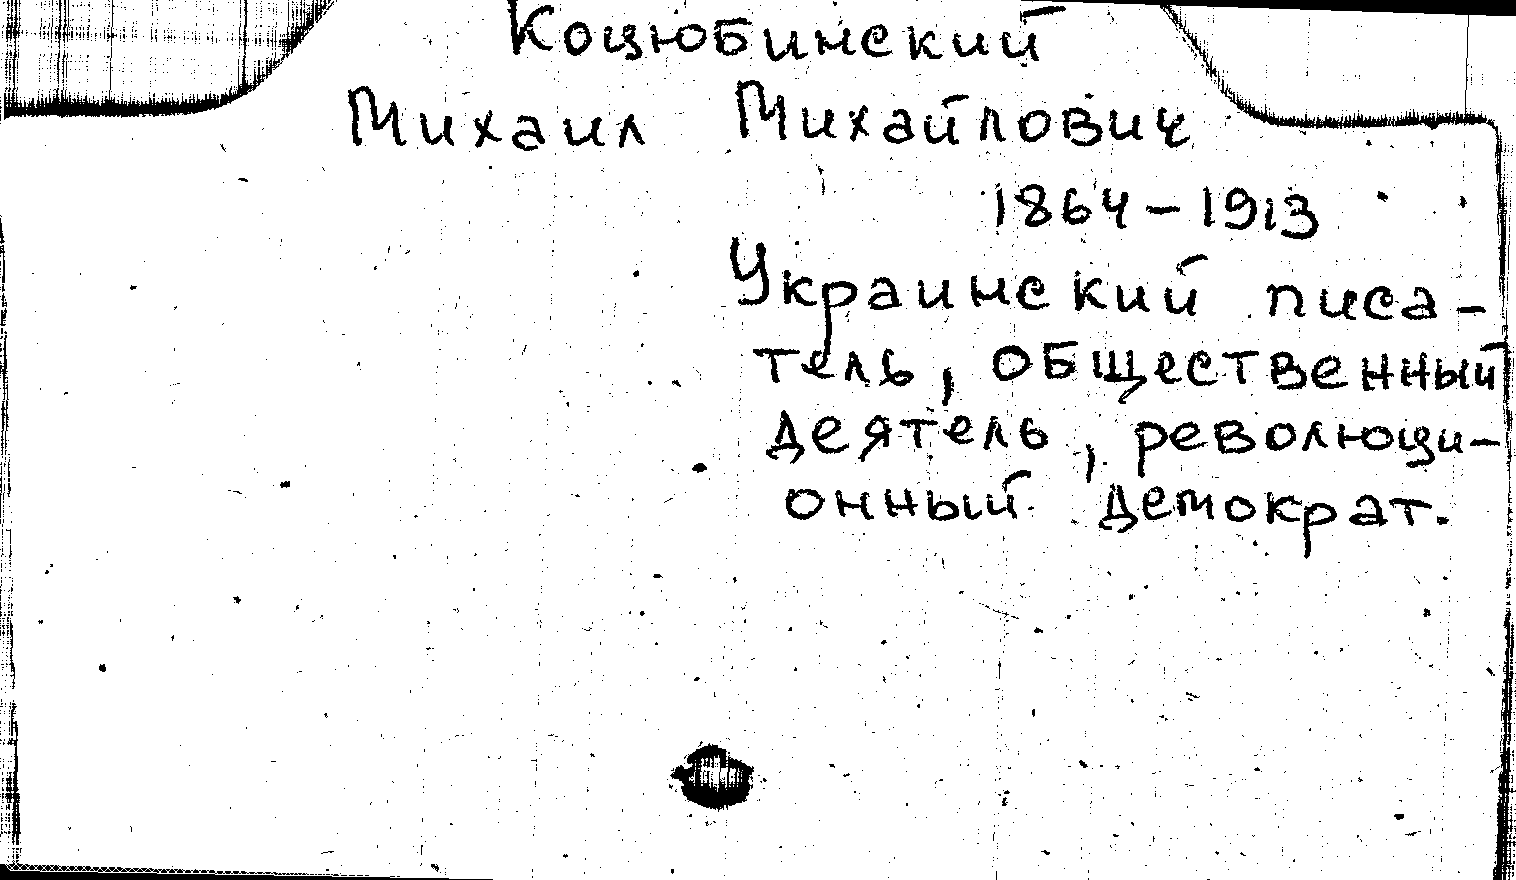 Коцюбинский
Михаил Михайлович
1864-1913
Украинский писа-
тель, общественный
деятель, революци-
онный демократ.